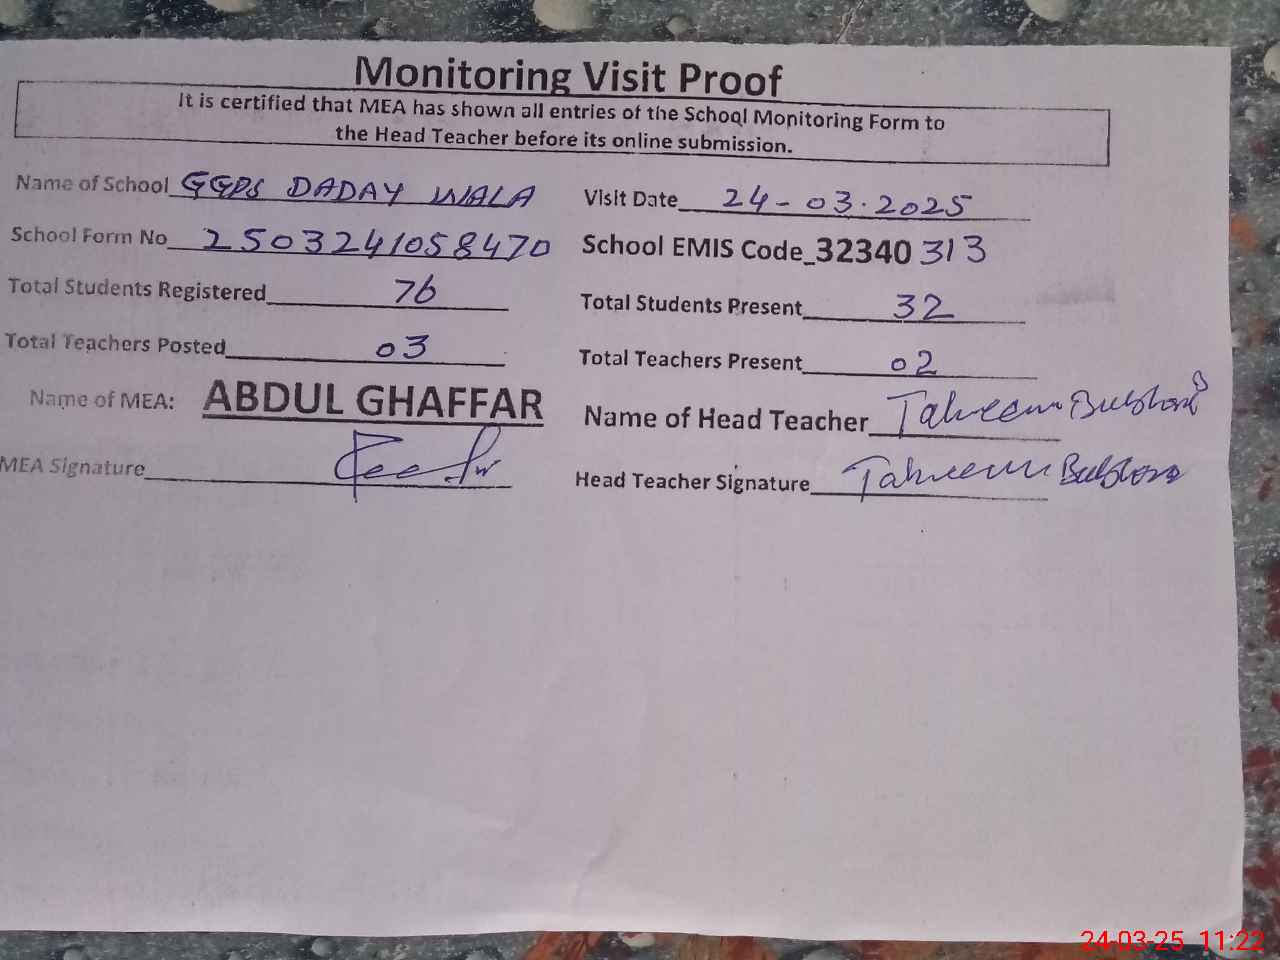 Monitoring Visit Proof
It is certified that MEA has shown all entries of the School Monitoring Form to
the Head Teacher before its online submission.
Name of School GGPS DADAY WALA
Visit Date 24-03.2025
School Form No 2503241058470
School EMIS Code_32340 313
Total Students Registered 76
Total Students Present 32
Total Teachers Posted 03
Total Teachers Present 02
Name of MEA: ABDUL GHAFFAR
Name of Head Teacher Tahreem Bushra
MEA Signature
Head Teacher Signature Tahreem Bushra
24-03-25 11:22